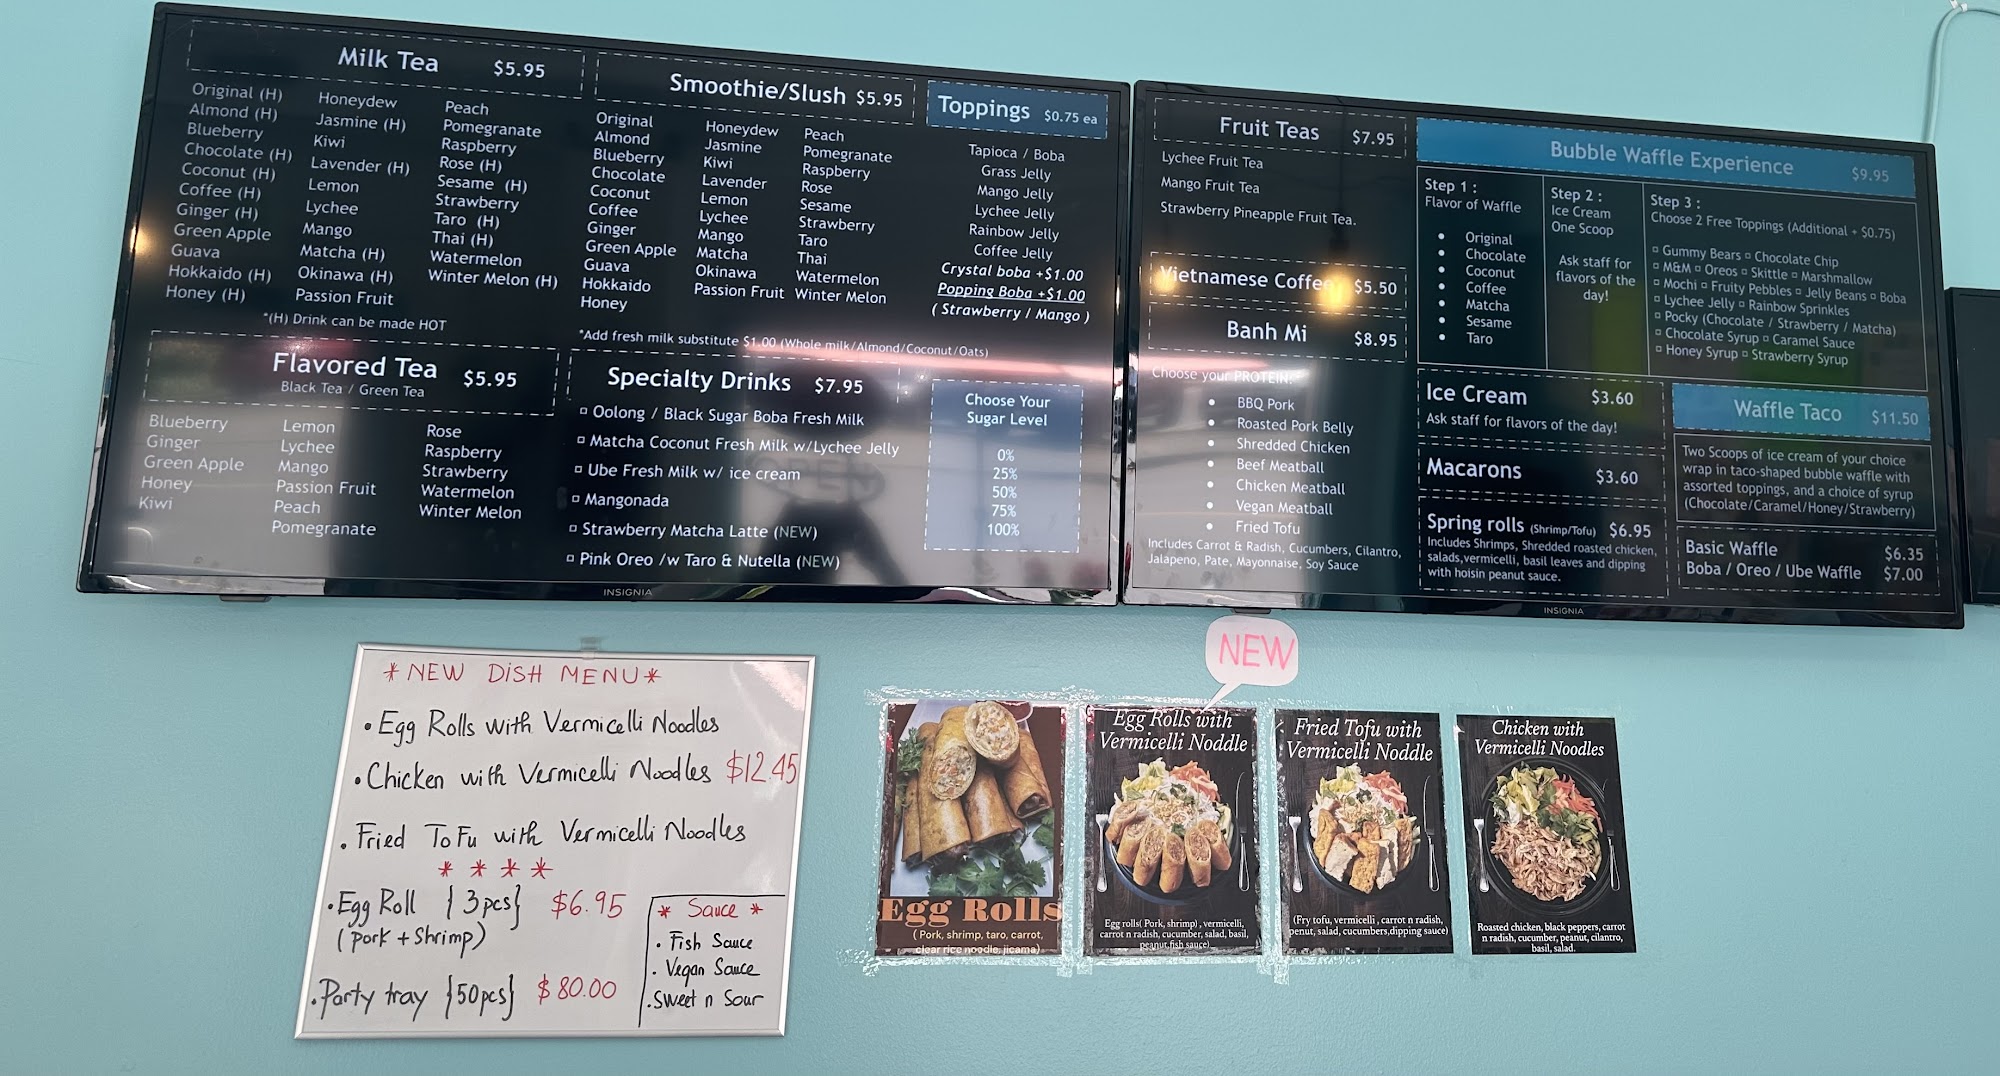 Milk Tea $5.95
Original (H)
Almond (H)
Blueberry
Chocolate (H)
Coconut (H)
Coffee (H)
Ginger (H)
Green Apple
Guava
Hokkaido (H)
Honey (H)
Honeydew
Jasmine (H)
Kiwi
Lavender (H)
Lemon
Lychee
Mango
Matcha (H)
Okinawa (H)
Passion Fruit
Peach
Pomegranate
Raspberry
Rose (H)
Sesame (H)
Strawberry
Taro (H)
Thai (H)
Watermelon
Winter Melon (H)
*(H) Drink can be made HOT
Flavored Tea $5.95
Black Tea / Green Tea
Blueberry
Ginger
Green Apple
Honey
Kiwi
Lemon
Lychee
Mango
Passion Fruit
Peach
Pomegranate
Rose
Raspberry
Strawberry
Watermelon
Winter Melon
Smoothie/Slush $5.95
Original
Almond
Blueberry
Chocolate
Coconut
Coffee
Ginger
Green Apple
Guava
Hokkaido
Honey
Honeydew
Jasmine
Kiwi
Lavender
Lemon
Lychee
Mango
Matcha
Okinawa
Passion Fruit
Peach
Pomegranate
Raspberry
Rose
Sesame
Strawberry
Taro
Thai
Watermelon
Winter Melon
*Add fresh milk substitute $1.00 (Whole milk/Almond/Coconut/Oats)
Toppings $0.75 ea
Tapioca / Boba
Grass Jelly
Mango Jelly
Lychee Jelly
Rainbow Jelly
Coffee Jelly
Crystal boba +$1.00
Popping Boba +$1.00
( Strawberry / Mango )
Specialty Drinks $7.95
Oolong / Black Sugar Boba Fresh Milk
Matcha Coconut Fresh Milk w/Lychee Jelly
Ube Fresh Milk w/ ice cream
Mangonada
Strawberry Matcha Latte (NEW)
Pink Oreo /w Taro & Nutella (NEW)
Choose Your
Sugar Level
0%
25%
50%
75%
100%
INSIGNIA
Fruit Teas $7.95
Lychee Fruit Tea
Mango Fruit Tea
Strawberry Pineapple Fruit Tea.
Vietnamese Coffee $5.50
Banh Mi $8.95
Choose your PROTEIN:
• BBQ Pork
• Roasted Pork Belly
• Shredded Chicken
• Beef Meatball
• Chicken Meatball
• Vegan Meatball
• Fried Tofu
Includes Carrot & Radish, Cucumbers, Cilantro,
Jalapeno, Pate, Mayonnaise, Soy Sauce
Bubble Waffle Experience $9.95
Step 1 :
Flavor of Waffle
• Original
• Chocolate
• Coconut
• Coffee
• Matcha
• Sesame
• Taro
Step 2 :
Ice Cream
One Scoop
Ask staff for
flavors of the
day!
Step 3 :
Choose 2 Free Toppings (Additional + $0.75)
Gummy Bears Chocolate Chip
M&M Oreos Skittle Marshmallow
Mochi Fruity Pebbles Jelly Beans Boba
Lychee Jelly Rainbow Sprinkles
Pocky (Chocolate / Strawberry / Matcha)
Chocolate Syrup Caramel Sauce
Honey Syrup Strawberry Syrup
Ice Cream $3.60
Ask staff for flavors of the day!
Macarons $3.60
Spring rolls (Shrimp/Tofu) $6.95
Includes Shrimps, Shredded roasted chicken,
salads,vermicelli, basil leaves and dipping
with hoisin peanut sauce.
Waffle Taco $11.50
Two Scoops of ice cream of your choice
wrap in taco-shaped bubble waffle with
assorted toppings, and a choice of syrup
(Chocolate/Caramel/Honey/Strawberry)
Basic Waffle $6.35
Boba / Oreo / Ube Waffle $7.00
INSIGNIA
*NEW DISH MENU*
• Egg Rolls with Vermicelli Noodles
• Chicken with Vermicelli Noodles $12.45
• Fried ToFu with Vermicelli Noodles
* * * *
• Egg Roll {3pcs} $6.95
(Pork + Shrimp)
• Party tray {50pcs} $80.00
* Sauce *
• Fish Sauce
• Vegan Sauce
• Sweet n Sour
NEW
Egg Rolls
(Pork, shrimp, taro, carrot,
clear rice noodle, jicama)
Egg Rolls with
Vermicelli Noddle
Egg rolls( Pork, shrimp) , vermicelli,
carrot n radish, cucumber, salad, basil,
peanut,fish sauce)
Fried Tofu with
Vermicelli Noddle
(Fry tofu, vermicelli , carrot n radish,
penut, salad, cucumbers,dipping sauce)
Chicken with
Vermicelli Noodles
Roasted chicken, black peppers, carrot
n radish, cucumber, peanut, cilantro,
basil, salad.